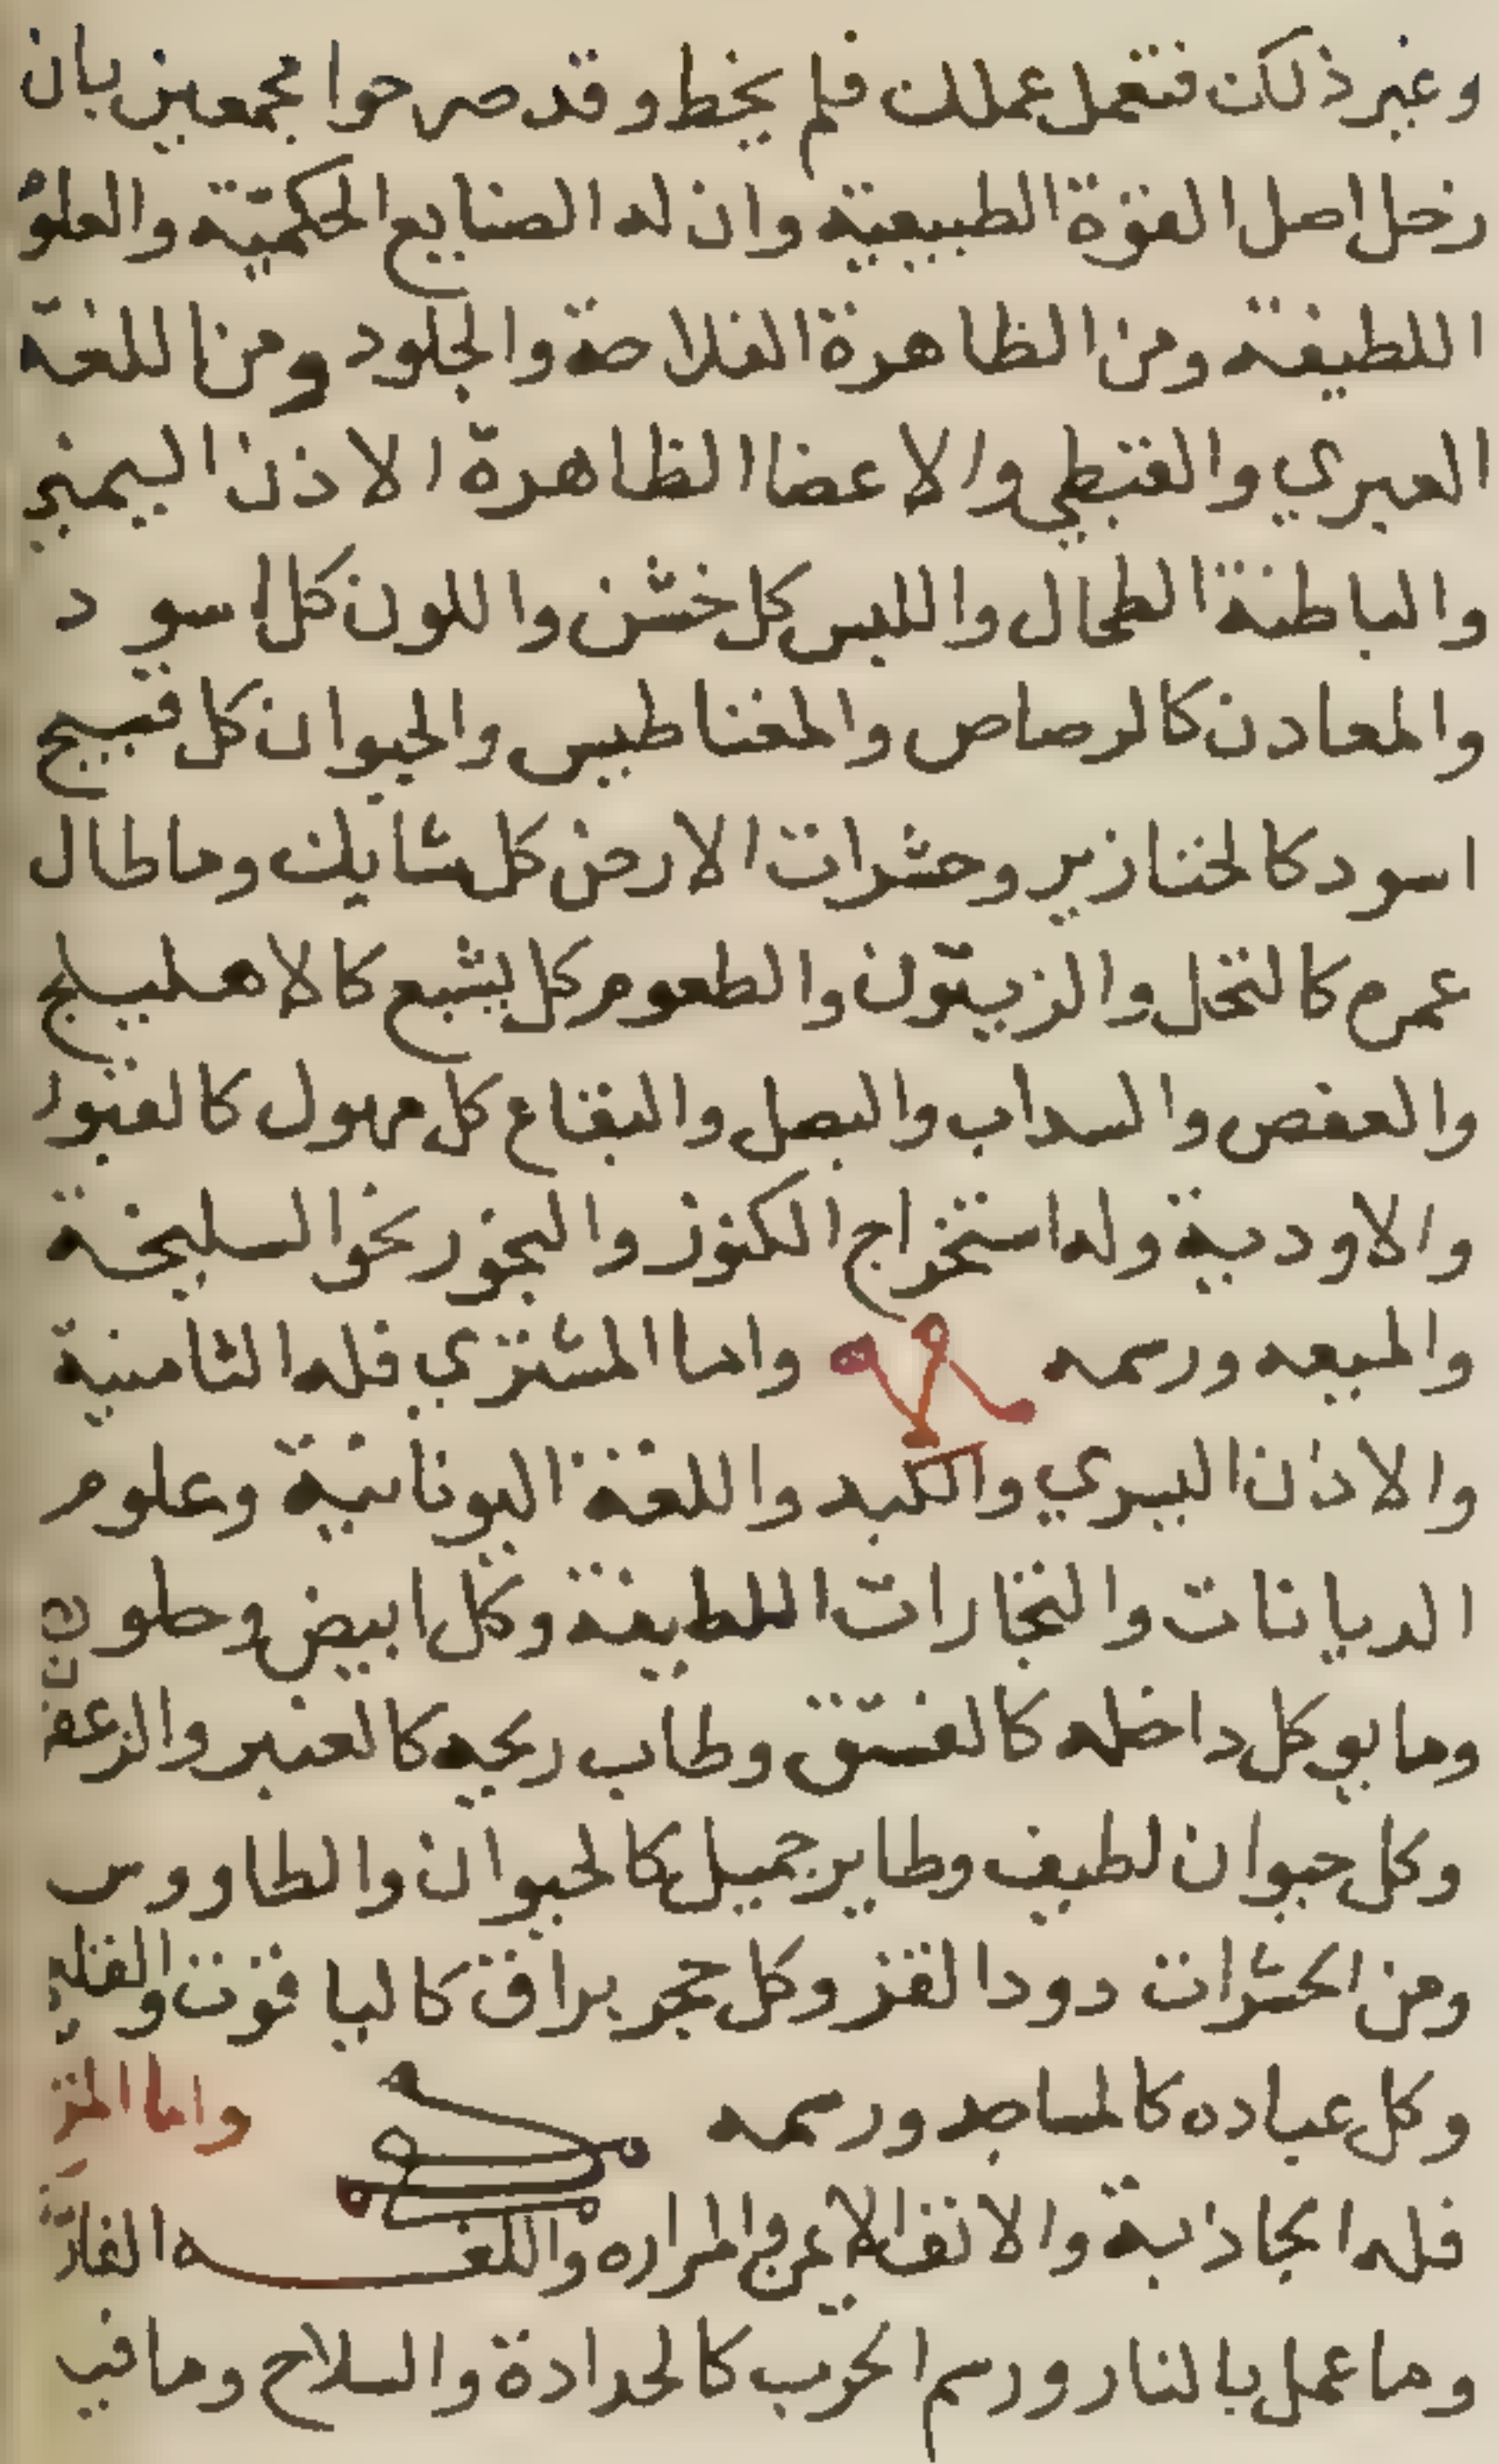 وغير ذلك فتعمل عملك فلم يخط وقد صرحوا مجمعين بان
زحل اصل القوة الطبيعية وان له الصنايع الحكميّة والعلو
اللطيفة ومن الظاهرة الفلاحة والجلود ومن اللغة
العبري والقبطي والاعضا الظاهرة الاذن اليمني
والباطنة الطحال واللبس كل خشن واللون كل اسود
والمعادن كالرصاص والمغناطيس والحيوان كل قبيح
اسود كالخنازير وحشرات الارض كل شايك وما طال
عمره كالنخل والزيتون والطعوم كل بشع كالاهليلج
والعفص والسداب والبصل والبقاع كل مهول كالقبور
والاودية وله استخراج الكنوز والبخور نحو السليخة
والميعه ورسمه واما المشتري فله الثامنية
والاذن اليسري والكبد واللغة اليونانية وعلوم
الديانات والتجارات اللطيفة وكل ابيض وحلو
وما يوكل داخله كالفستق وطاب ريحه كالعنبر والزعفران
وكل حيوان لطيف وطاير جميل كالحيوان والطاووس
ومن الحشرات دود القز وكل حجر براق كالياقوت والقلي
وكل عباده كالمساجد ورسمه واما المر
فله الجاذبة والانف الايمن والمراره واللغه الفار
وما عمل بالنار ورسم الحرب كالحدادة والسلاح وما فيه